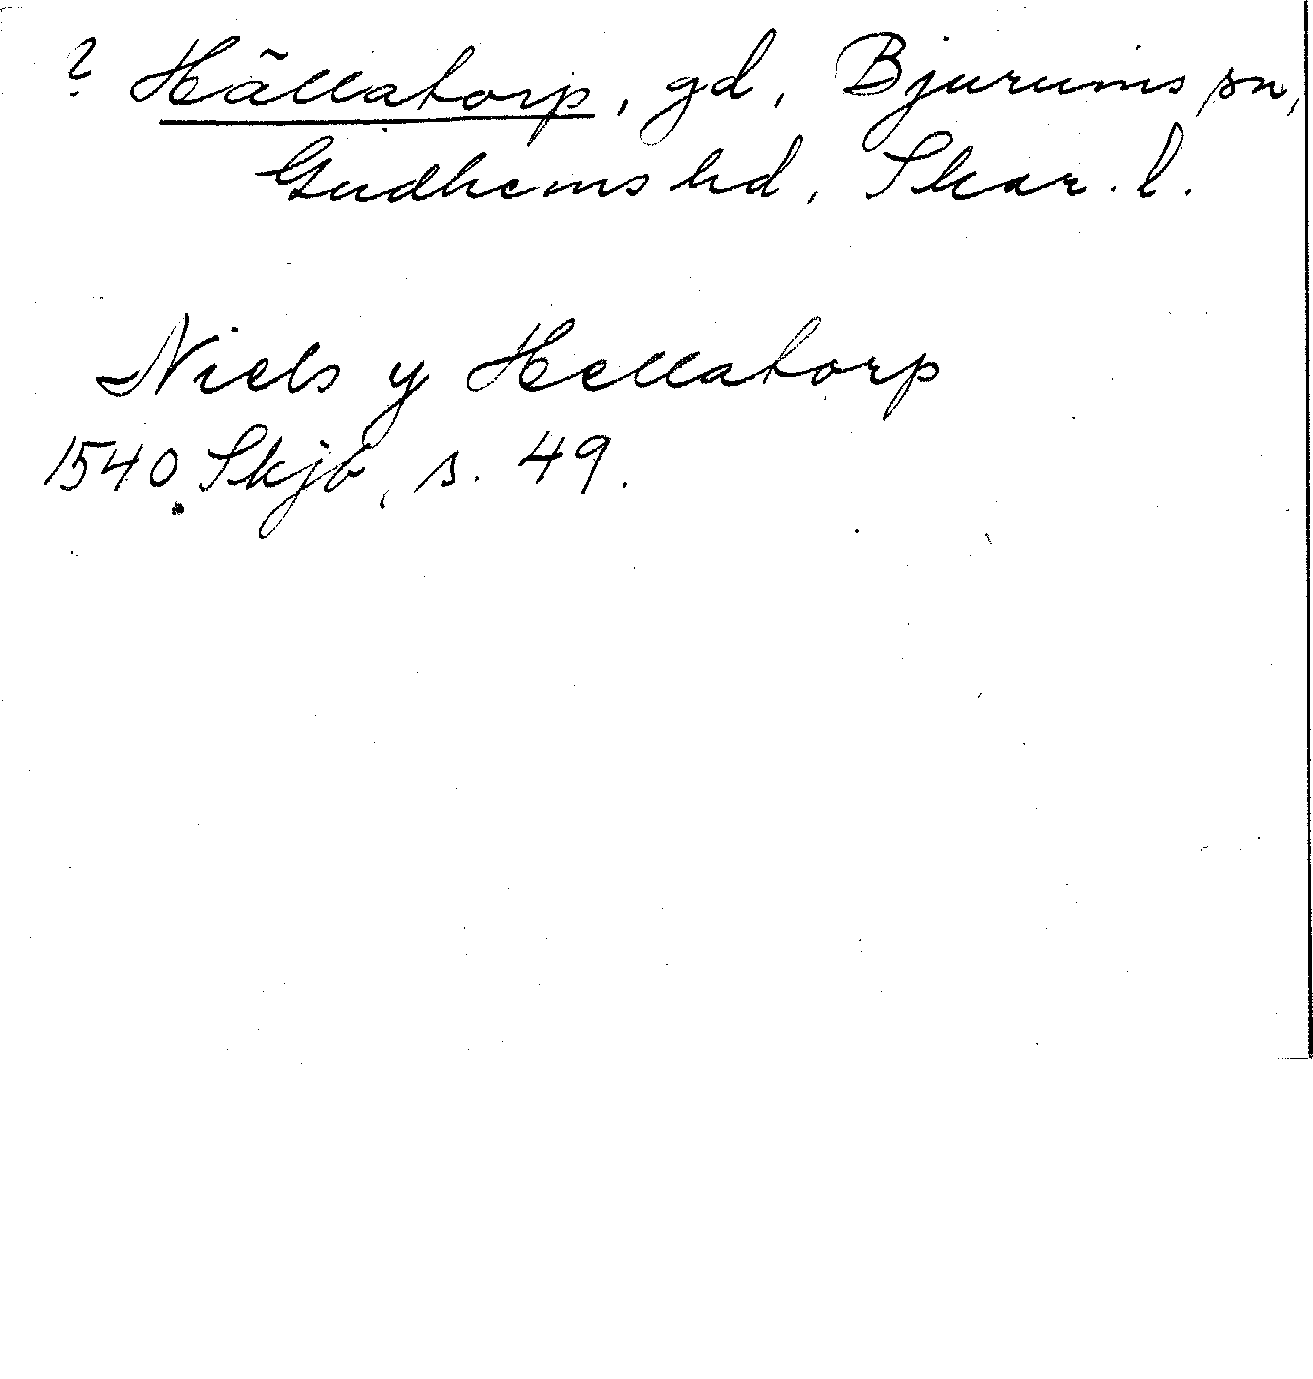 ? Hällatorp, gd, Bjurums sn,
Gudhems hd, Skar. l.
Niels y Hellatorp
1540 Skjb, s. 49.